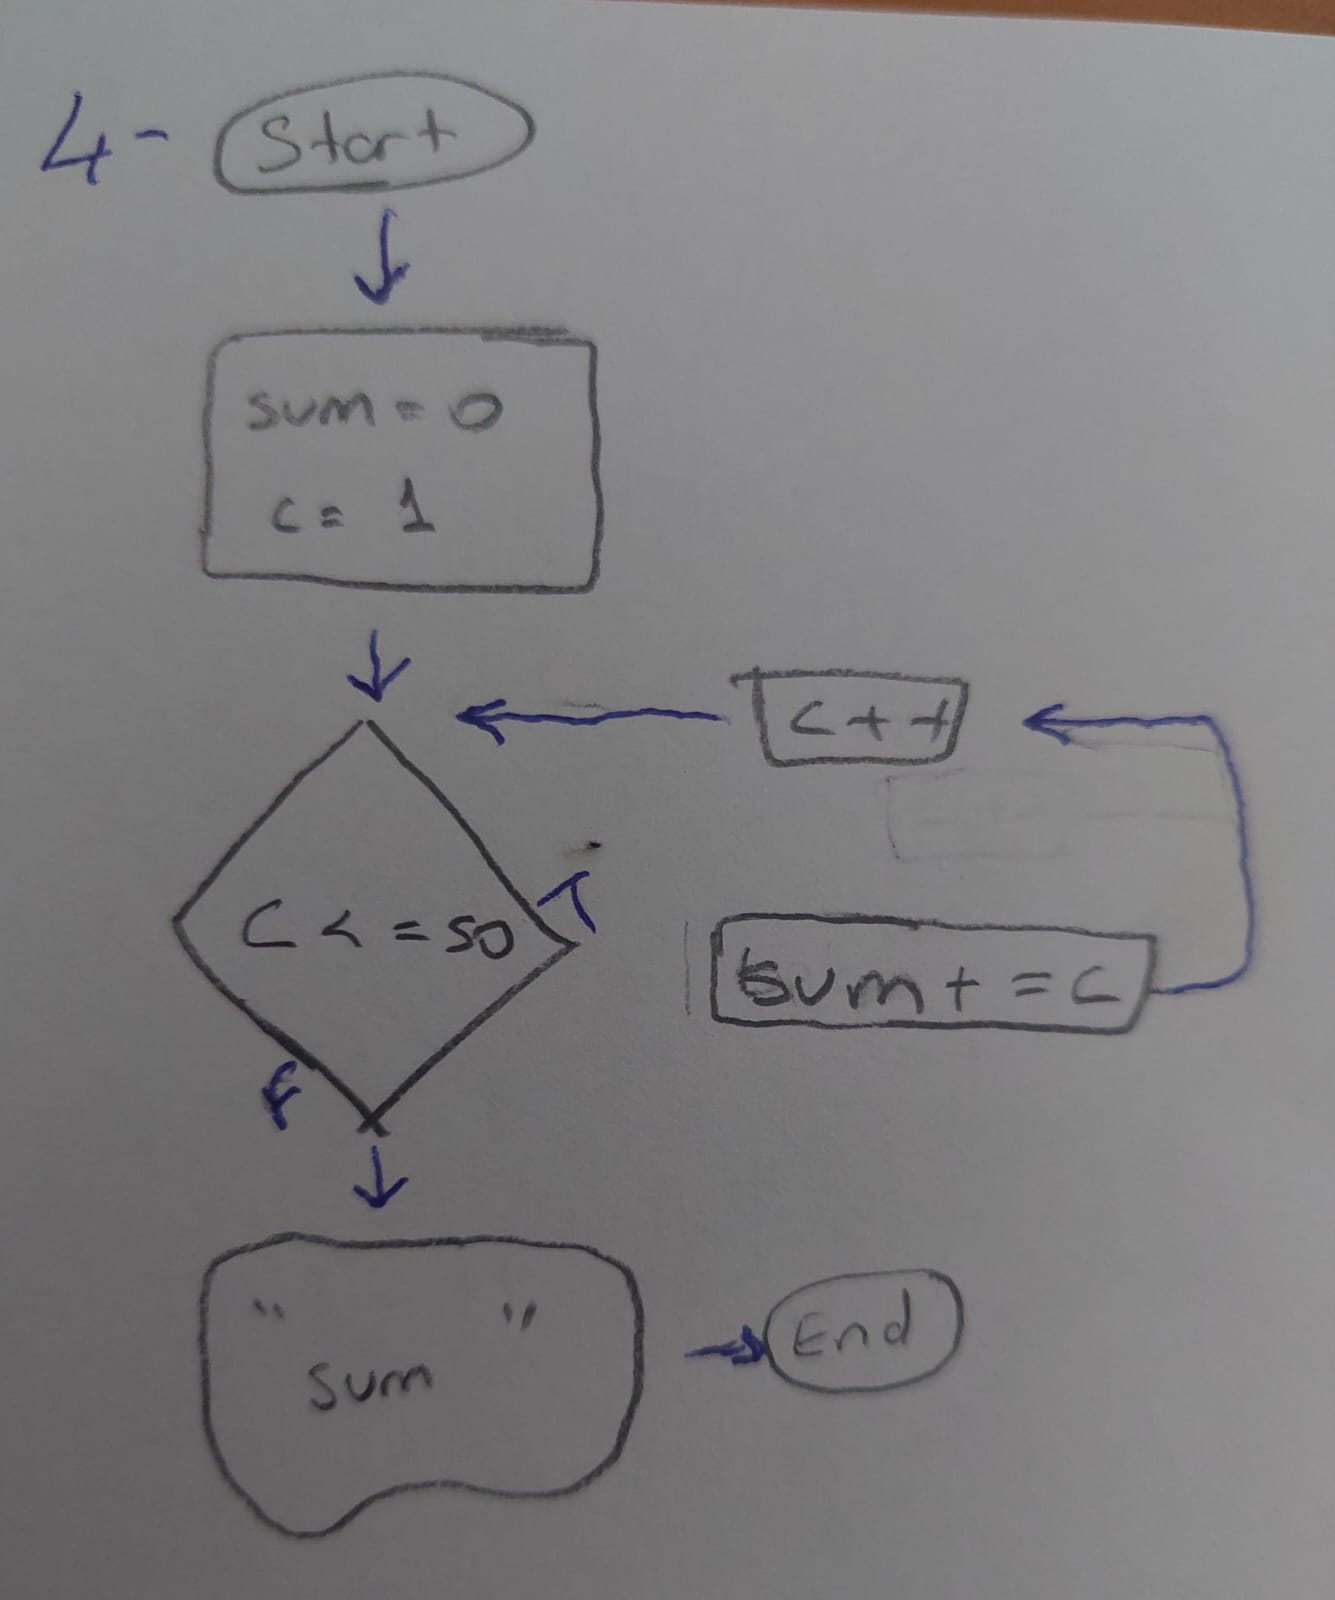 4- Start
sum = 0
c = 1
c++
C <= 50
T
sum + = c
F
" "
sum
End